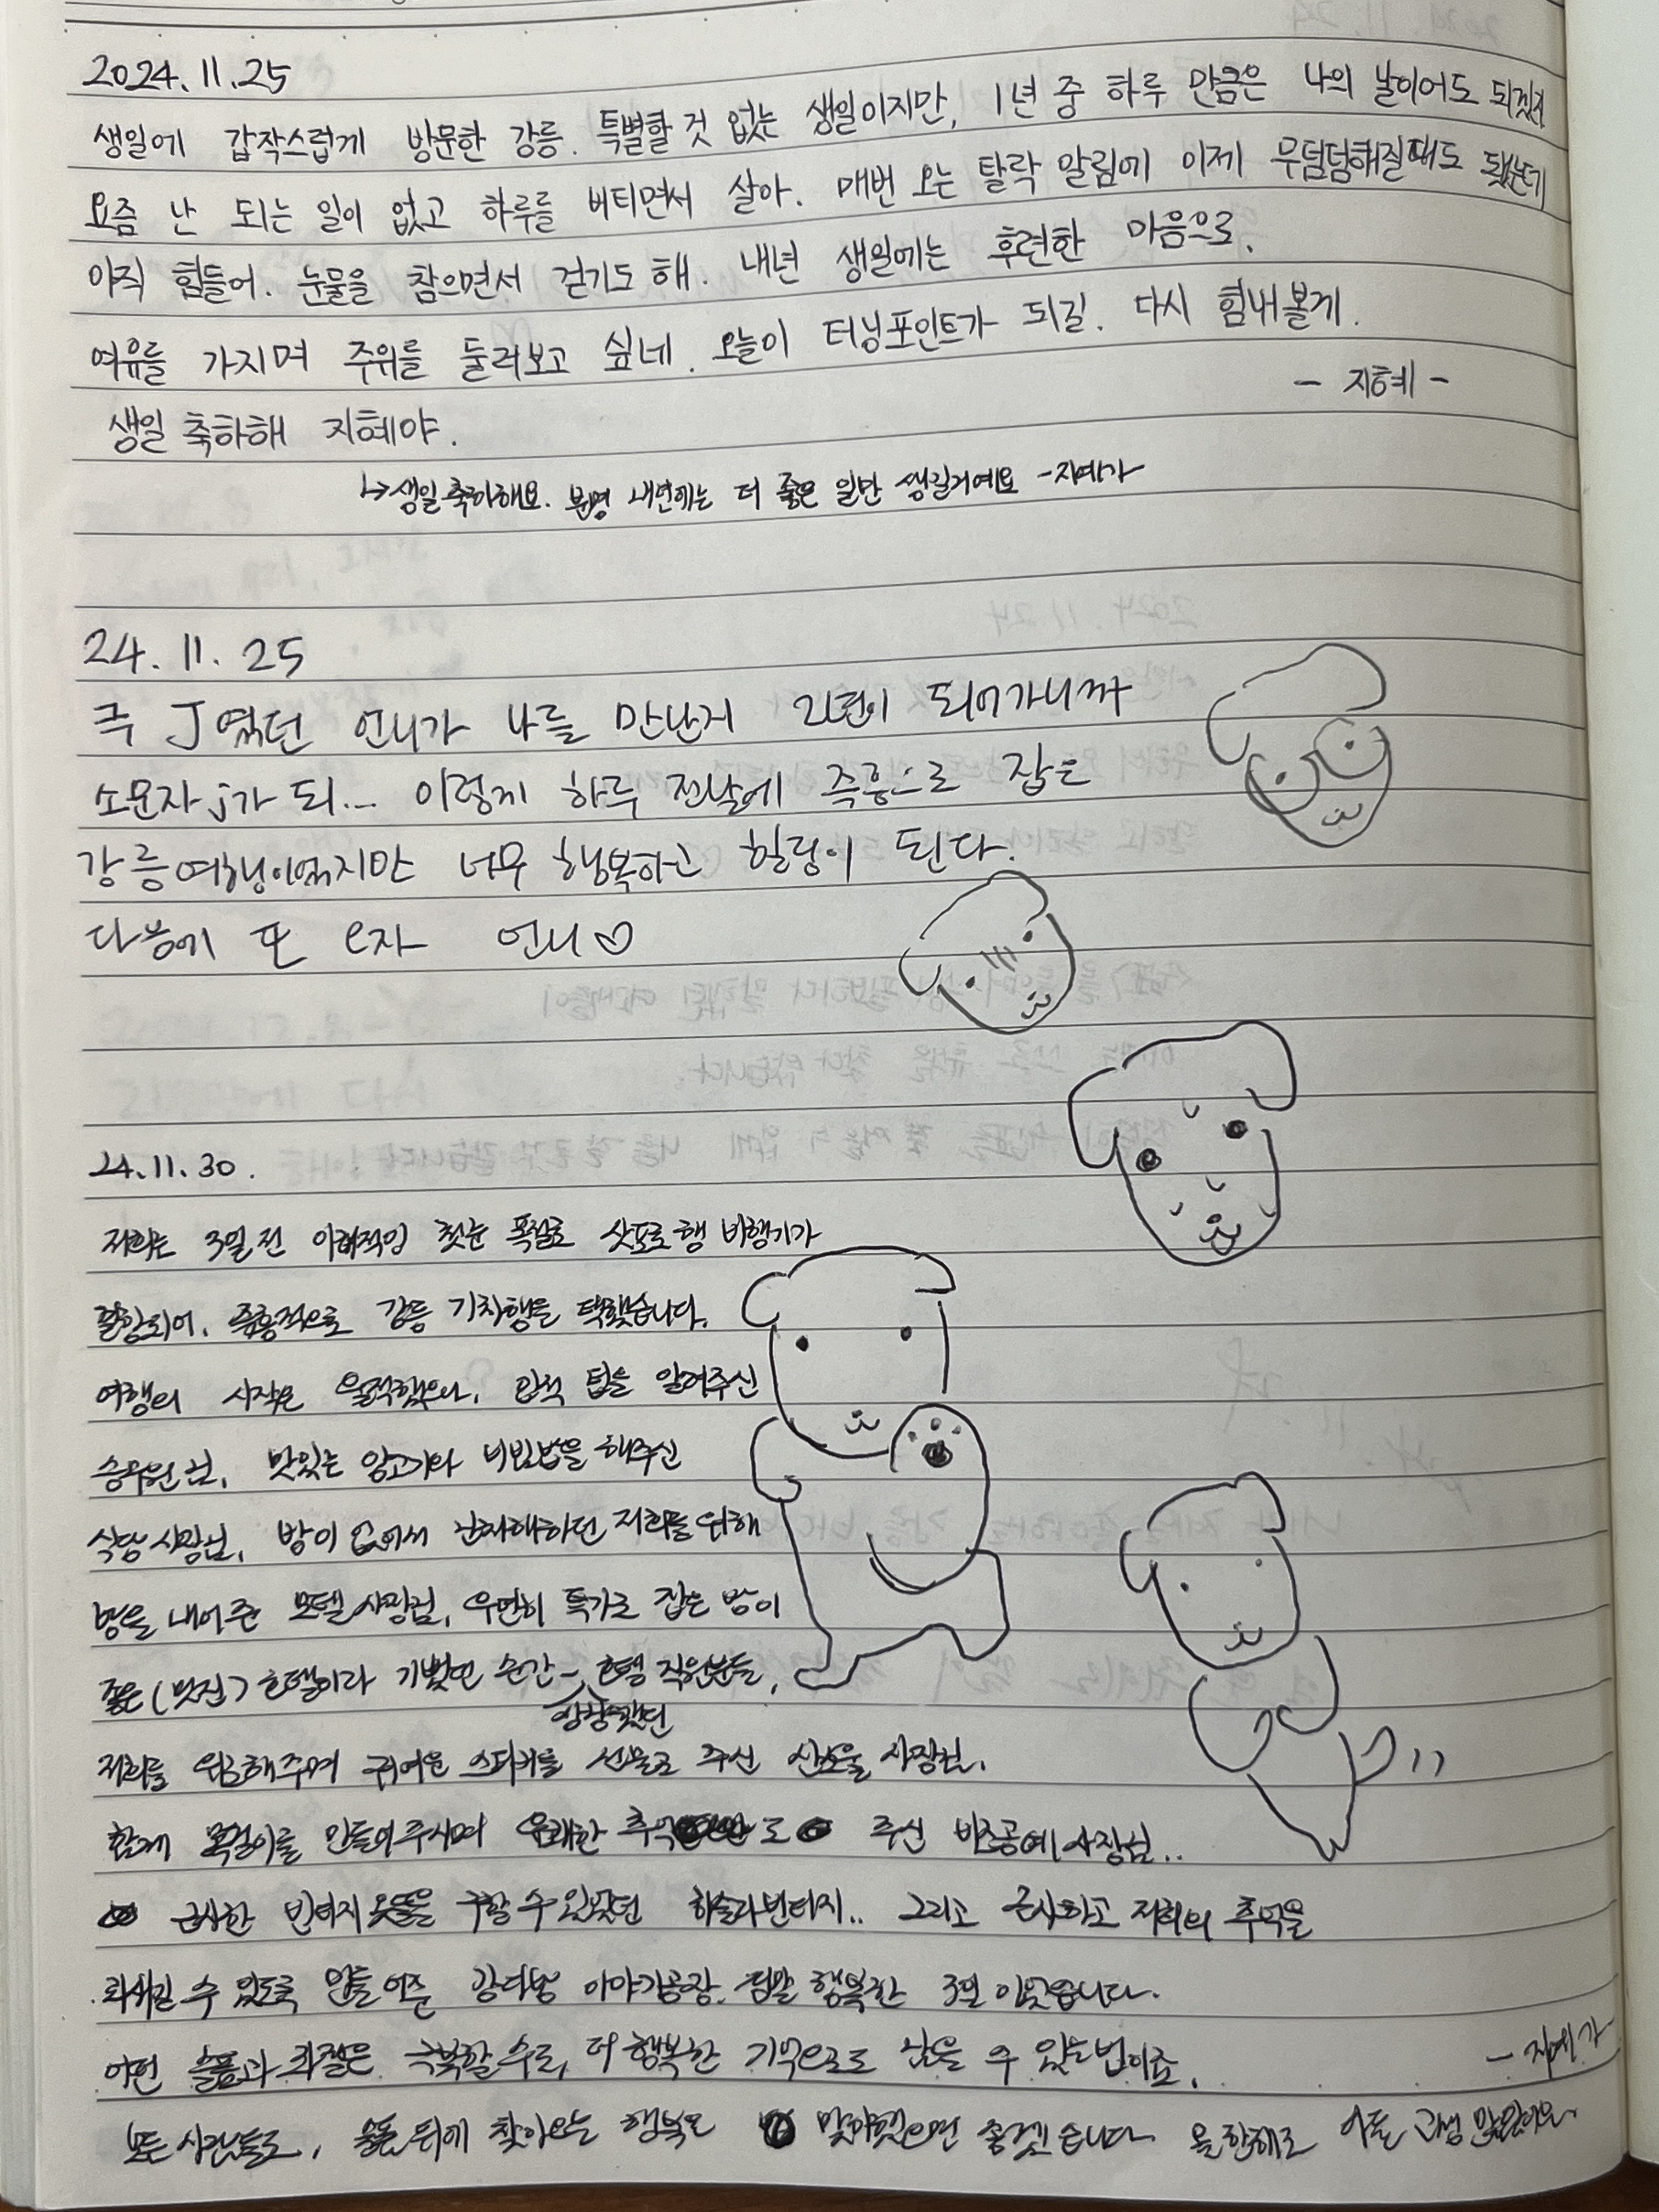 2024.11.25
생일에 갑작스럽게 방문한 강릉. 특별할 것 없는 생일이지만, 1년 중 하루 만큼은 나의 날이어도 되겠지
요즘 난 되는 일이 없고 하루를 버티면서 살아. 매번 오는 탈락 알림에 이제 무덤덤해질때도 됐는데
아직 힘들어. 눈물을 참으면서 걷기도 해. 내년 생일에는 후련한 마음으로,
여유를 가지며 주위를 둘러보고 싶네. 오늘이 터닝포인트가 되길. 다시 힘내볼게.
- 지혜 -
생일 축하해 지혜야.
↳생일축하해요. 분명 내년에는 더 좋은 일만 생길거예요 -지예가
24.11.25
극 J였던 언니가 나를 만난지 2년이 되어가니까
소문자j가 되... 이렇게 하루 전날에 즉흥으로 잡은
강릉여행이었지만 너무 행복하고 힐링이 된다.
다음에 또 e자 언니♡
24.11.30.
저희는 3일 전 이례적인 첫눈 폭설로 삿포로행 비행기가
결항되어, 즉흥적으로 강릉 기차행을 택했습니다.
여행의 시작은 울적했으나, 팁을 알려주신
승무원님, 맛있는 비빔밥을 해주신
식당 사장님, 방이 없어서 난처해하던 저희를 위해
방을 내어준 모텔 사장님, 우연히 특가로 잡은 방이
좋은(멋진) 호텔이라 기뻤던 순간- 호텔 직원분들,
저희를 위로해주며 귀여운 스티커를 선물로 주신 사장님,
함께 목걸이를 만들어주시며 유쾌한 추억 도 주신 비즈공예사장님..
근사한 빈티지 옷들을 구할 수 있었던 하슬라빈티지.. 그리고 근사하고 저희의 추억을
되새길 수 있도록 만들어준 강다방 이야기공장. 정말 행복한 3일이었습니다.
어떤 슬픔과 좌절은 극복할 수록, 더 행복한 기억으로 남을 수 있는법이죠.
- 지예가
모든 사람들도, 슬픔 뒤에 찾아오는 행복을 맞이했으면 좋겠습니다 올 한해도 다들 고생 많았어요